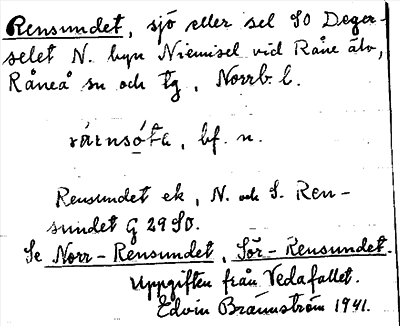 Rensundet, sjö eller sel SO Deger-
selet N. byn Niemisel vid Råne älv,
Råneå sn och tg, Norrb. l.
bf. n.
Rensundet ek, N. och S. Ren-
sundet G 29 SO.
Se Norr-Rensundet, Sör-Rensundet.
Uppgiften från Vedafallet.
Edvin Brännström 1941.